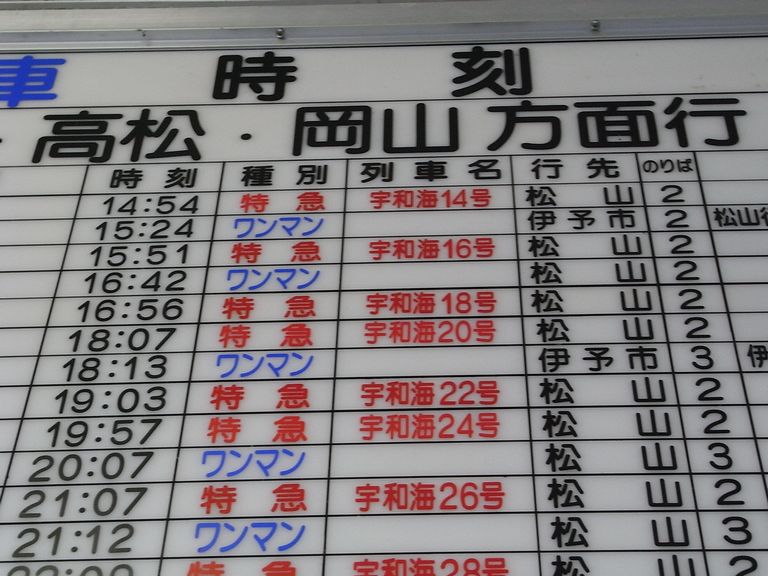 車 時 刻
・高松・岡山方面行
時 刻 種 別 列 車 名 行 先 のりば
14:54 特 急 宇和海14号 松 山 2
15:24 ワンマン 伊 予 市 2 松山
15:51 特 急 宇和海16号 松 山 2
16:42 ワンマン 松 山 2
16:56 特 急 宇和海18号 松 山 2
18:07 特 急 宇和海20号 松 山 2
18:13 ワンマン 伊 予 市 3 伊
19:03 特 急 宇和海22号 松 山 2
19:57 特 急 宇和海24号 松 山 2
20:07 ワンマン 松 山 3
21:07 特 急 宇和海26号 松 山 2
21:12 ワンマン 松 山 3
特 急 宇和海28号 松 山 2